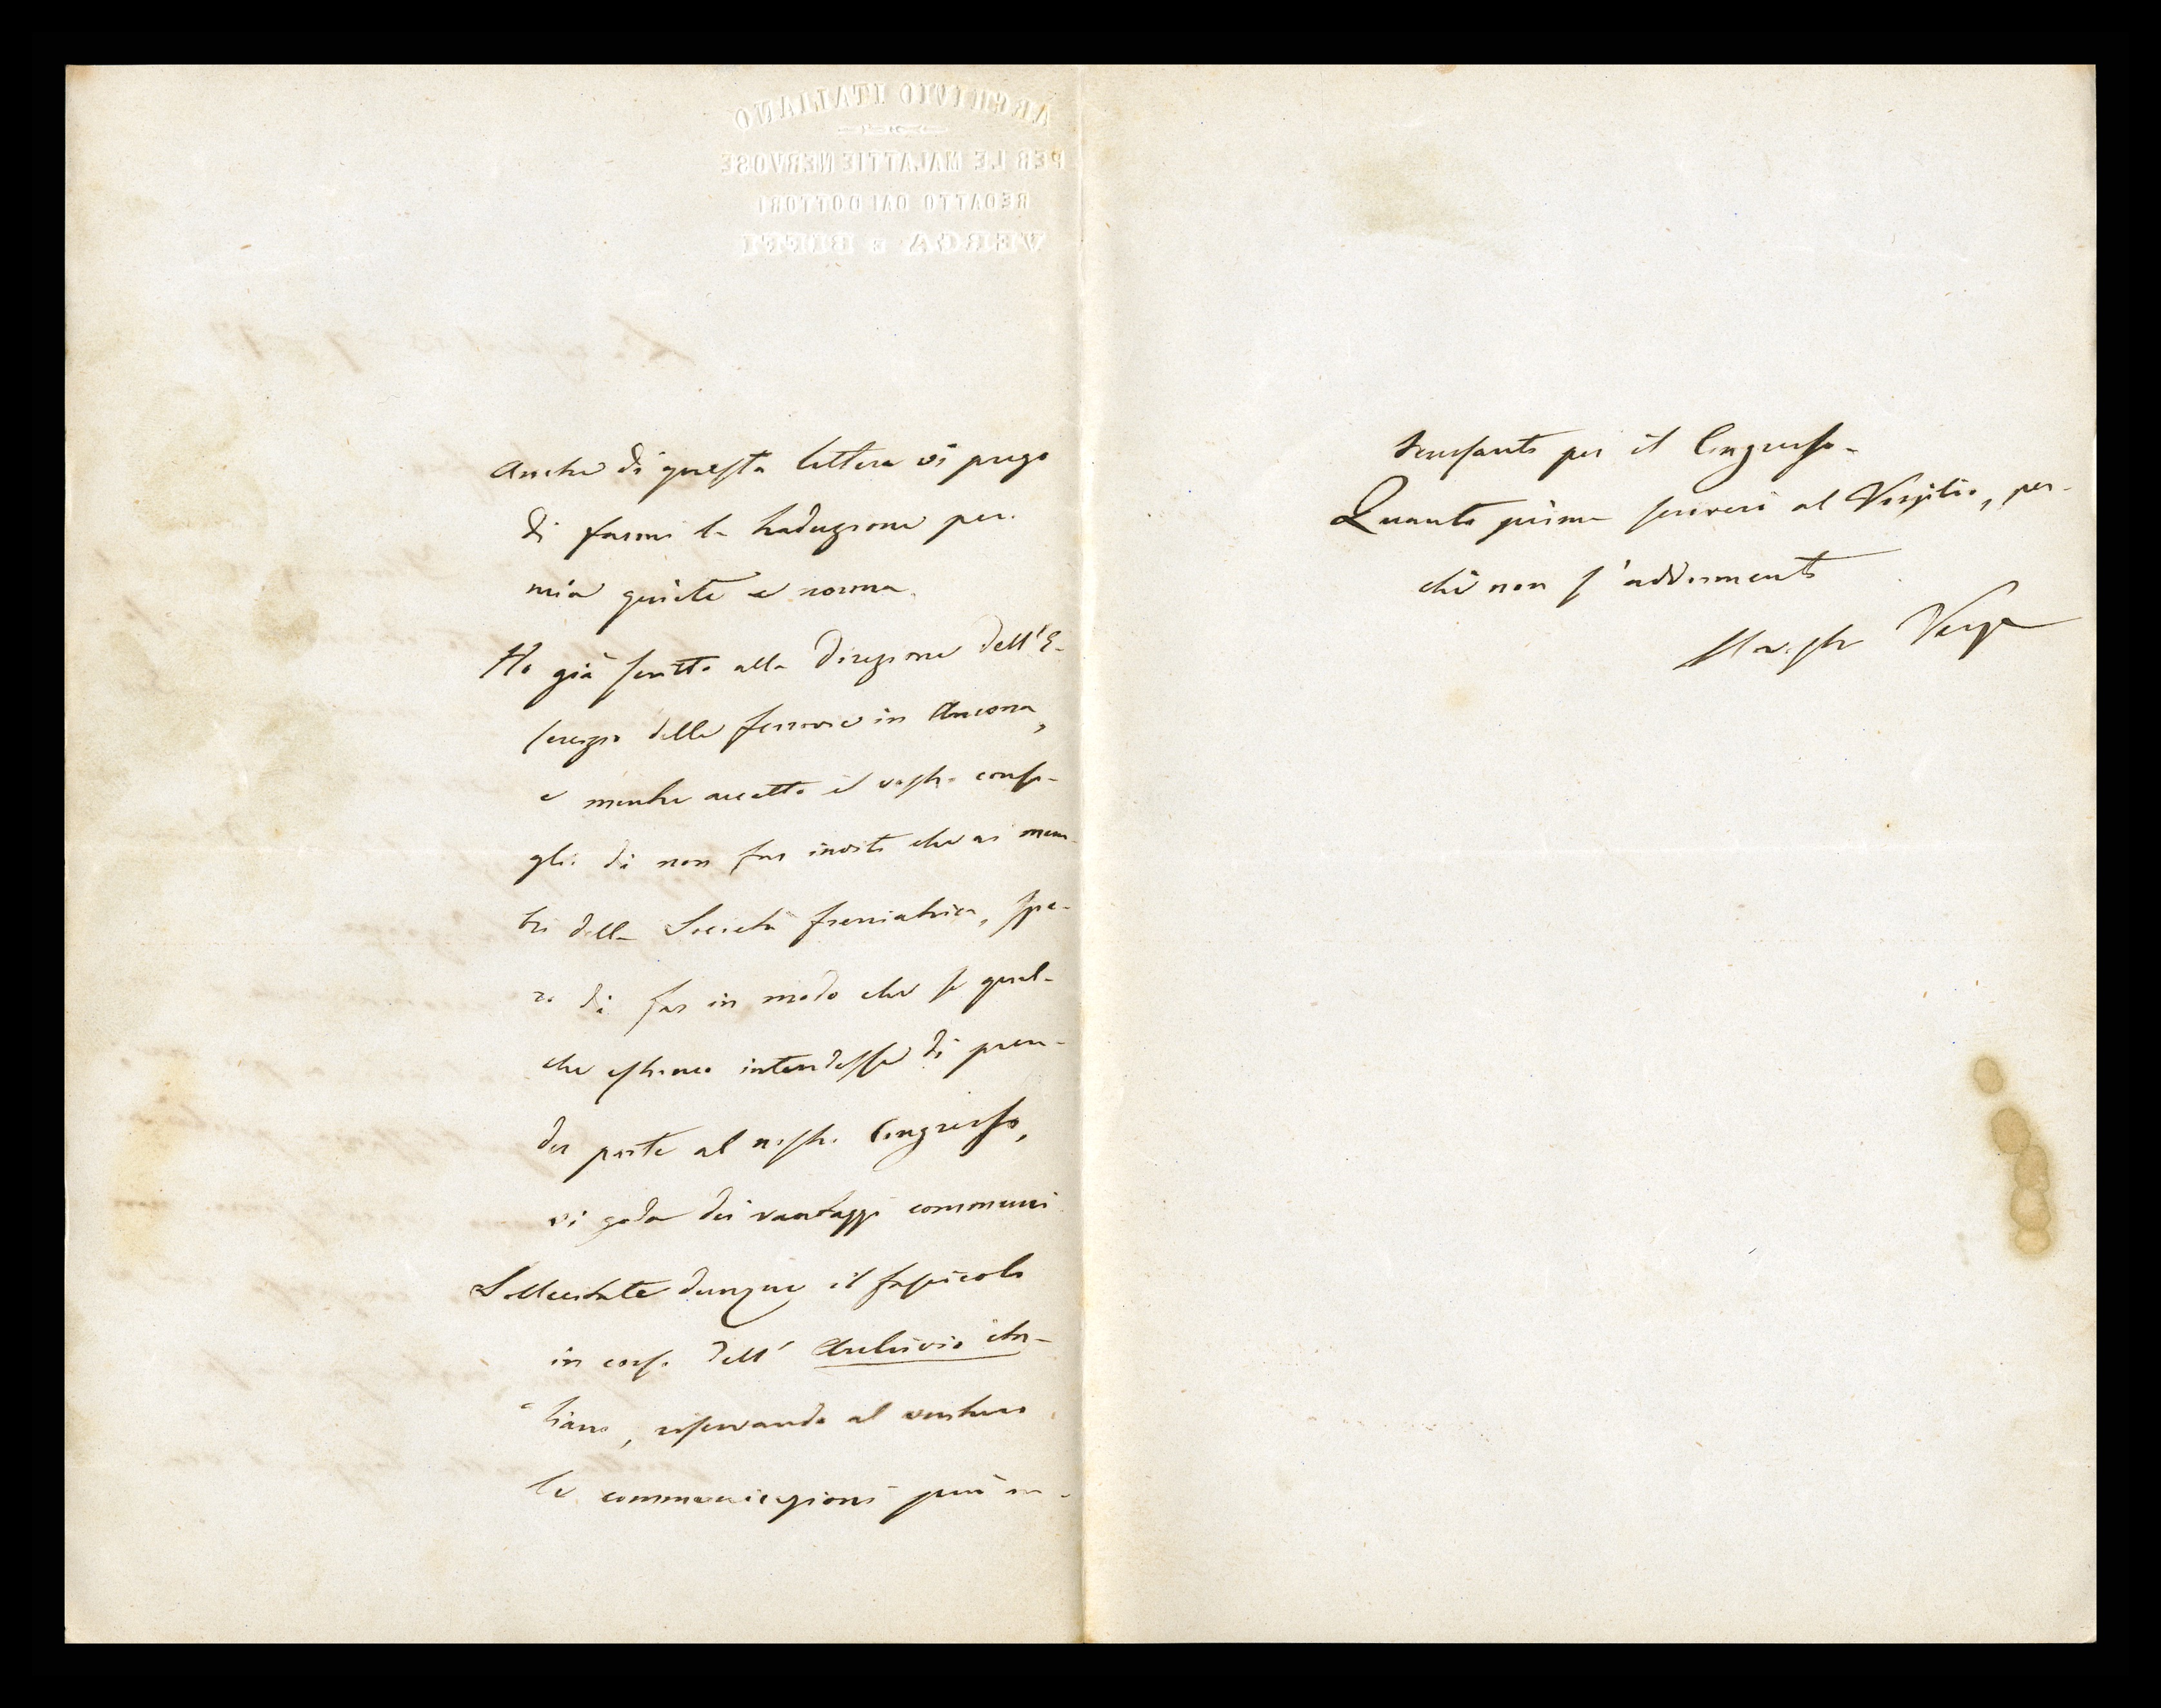 ARCHIVIO ITALIANO
PER LE MALATTIE NERVOSE
REDATTO DAI DOTTORI
VERGA E BIFFI
Anche di questa lettera vi prego
di farmi la traduzione per
mia quiete e norma.
Ho già scritto alla Direzione dell'E-
sercizio delle ferrovie in Ancona,
e mentre accetto il vostro consi-
glio di non far inviti che ai mem-
bri della Società freniatrica, spe-
ro di far in modo che se qual-
che estraneo intendesse di pren-
der parte al nostro Congresso,
vi goda dei vantaggi communi
Sollecitate dunque il fascicolo
in corso dell' Archivio ita-
liano, riservando al venturo
le communicazioni più in-
teressanti per il Congresso.
Quanto prima scriverò al Virgilio, per-
chè non s'addormenti
Verga